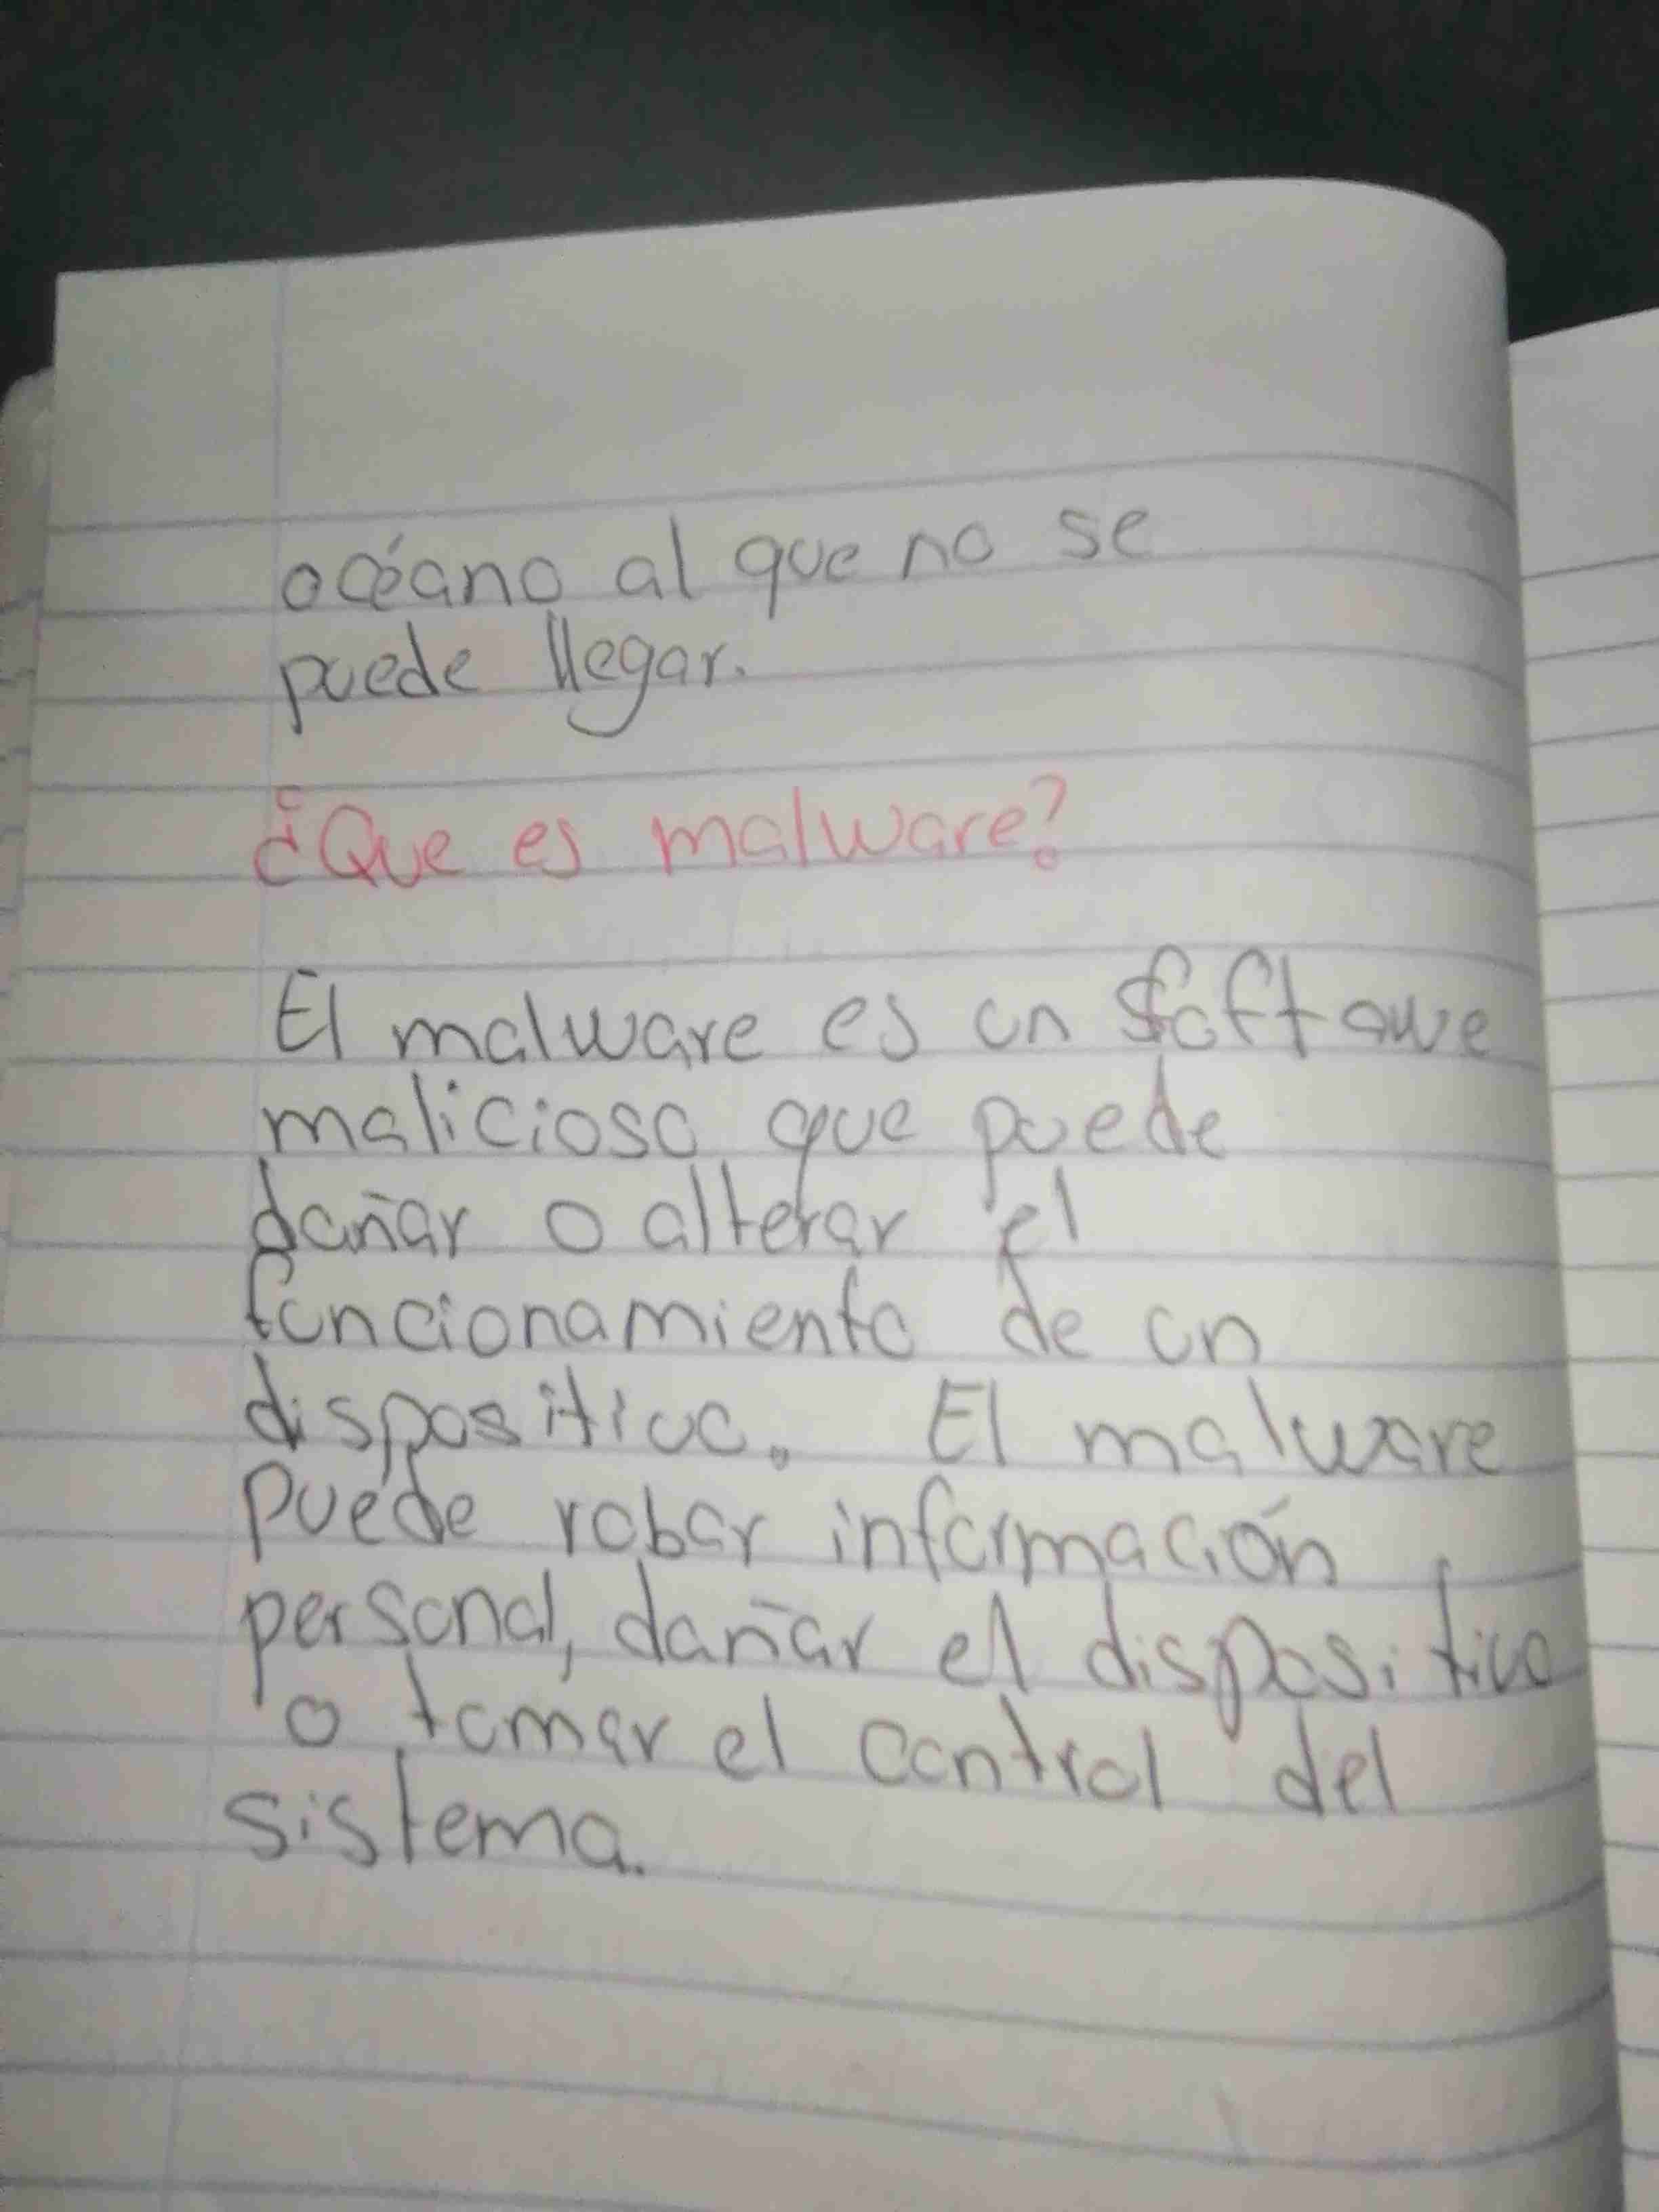 océano al que no se
puede llegar.
¿Que es malware?
El malware es un Softawe
malicioso que puede
dañar o alterar el
funcionamiento de un
dispositivo. El malware
puede robar información
personal, dañar el dispositivo
o tomar el control del
sistema.